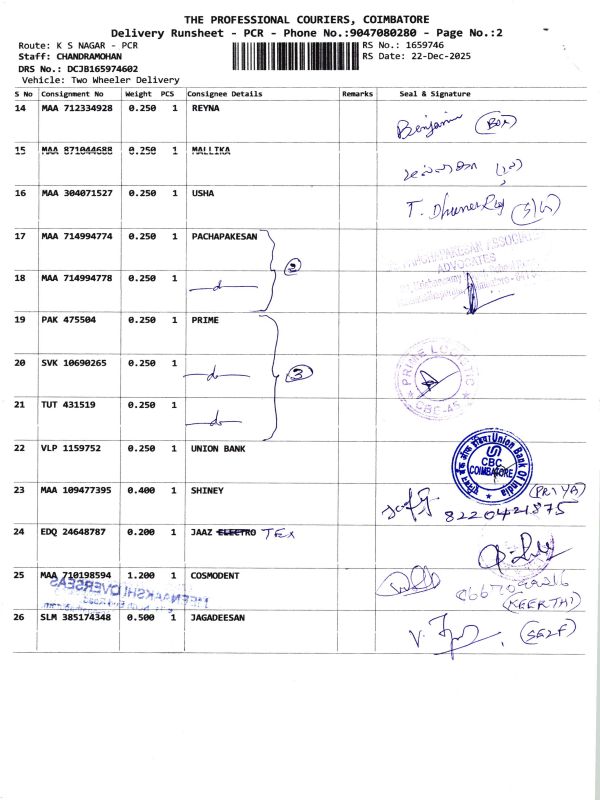 THE PROFESSIONAL COURIERS, COIMBATORE
Delivery Runsheet - PCR - Phone No.:9047080280 - Page No.:2
Route: K S NAGAR - PCR
RS No.: 1659746
Staff: CHANDRAMOHAN
RS Date: 22-Dec-2025
DRS No.: DCJB165974602
Vehicle: Two Wheeler Delivery
S No Consignment No Weight PCS Consignee Details Remarks Seal & Signature
14 MAA 712334928 0.250 1 REYNA
Benjamin (BOX)
15 MAA 871044688 0.250 1 MALLIKA
16 MAA 304071527 0.250 1 USHA
17 MAA 714994774 0.250 1 PACHAPAKESAN
2
ASSOCIATE
ADVOCATES
18 MAA 714994778 0.250 1 do
19 PAK 475504 0.250 1 PRIME
20 SVK 10690265 0.250 1 do
3
PRIME LOGISTIC
CBE-45
21 TUT 431519 0.250 1 do
22 VLP 1159752 0.250 1 UNION BANK
Union Bank Of India
CBC
COIMBATORE
23 MAA 109477395 0.400 1 SHINEY
(PRIYA)
8220421875
24 EDQ 24648787 0.200 1 JAAZ ELECTRO TEX
25 MAA 710198594 1.200 1 COSMODENT
(KEERTHI)
MEENAAKSHI OVERSEAS
26 SLM 385174348 0.500 1 JAGADEESAN
(SELF)